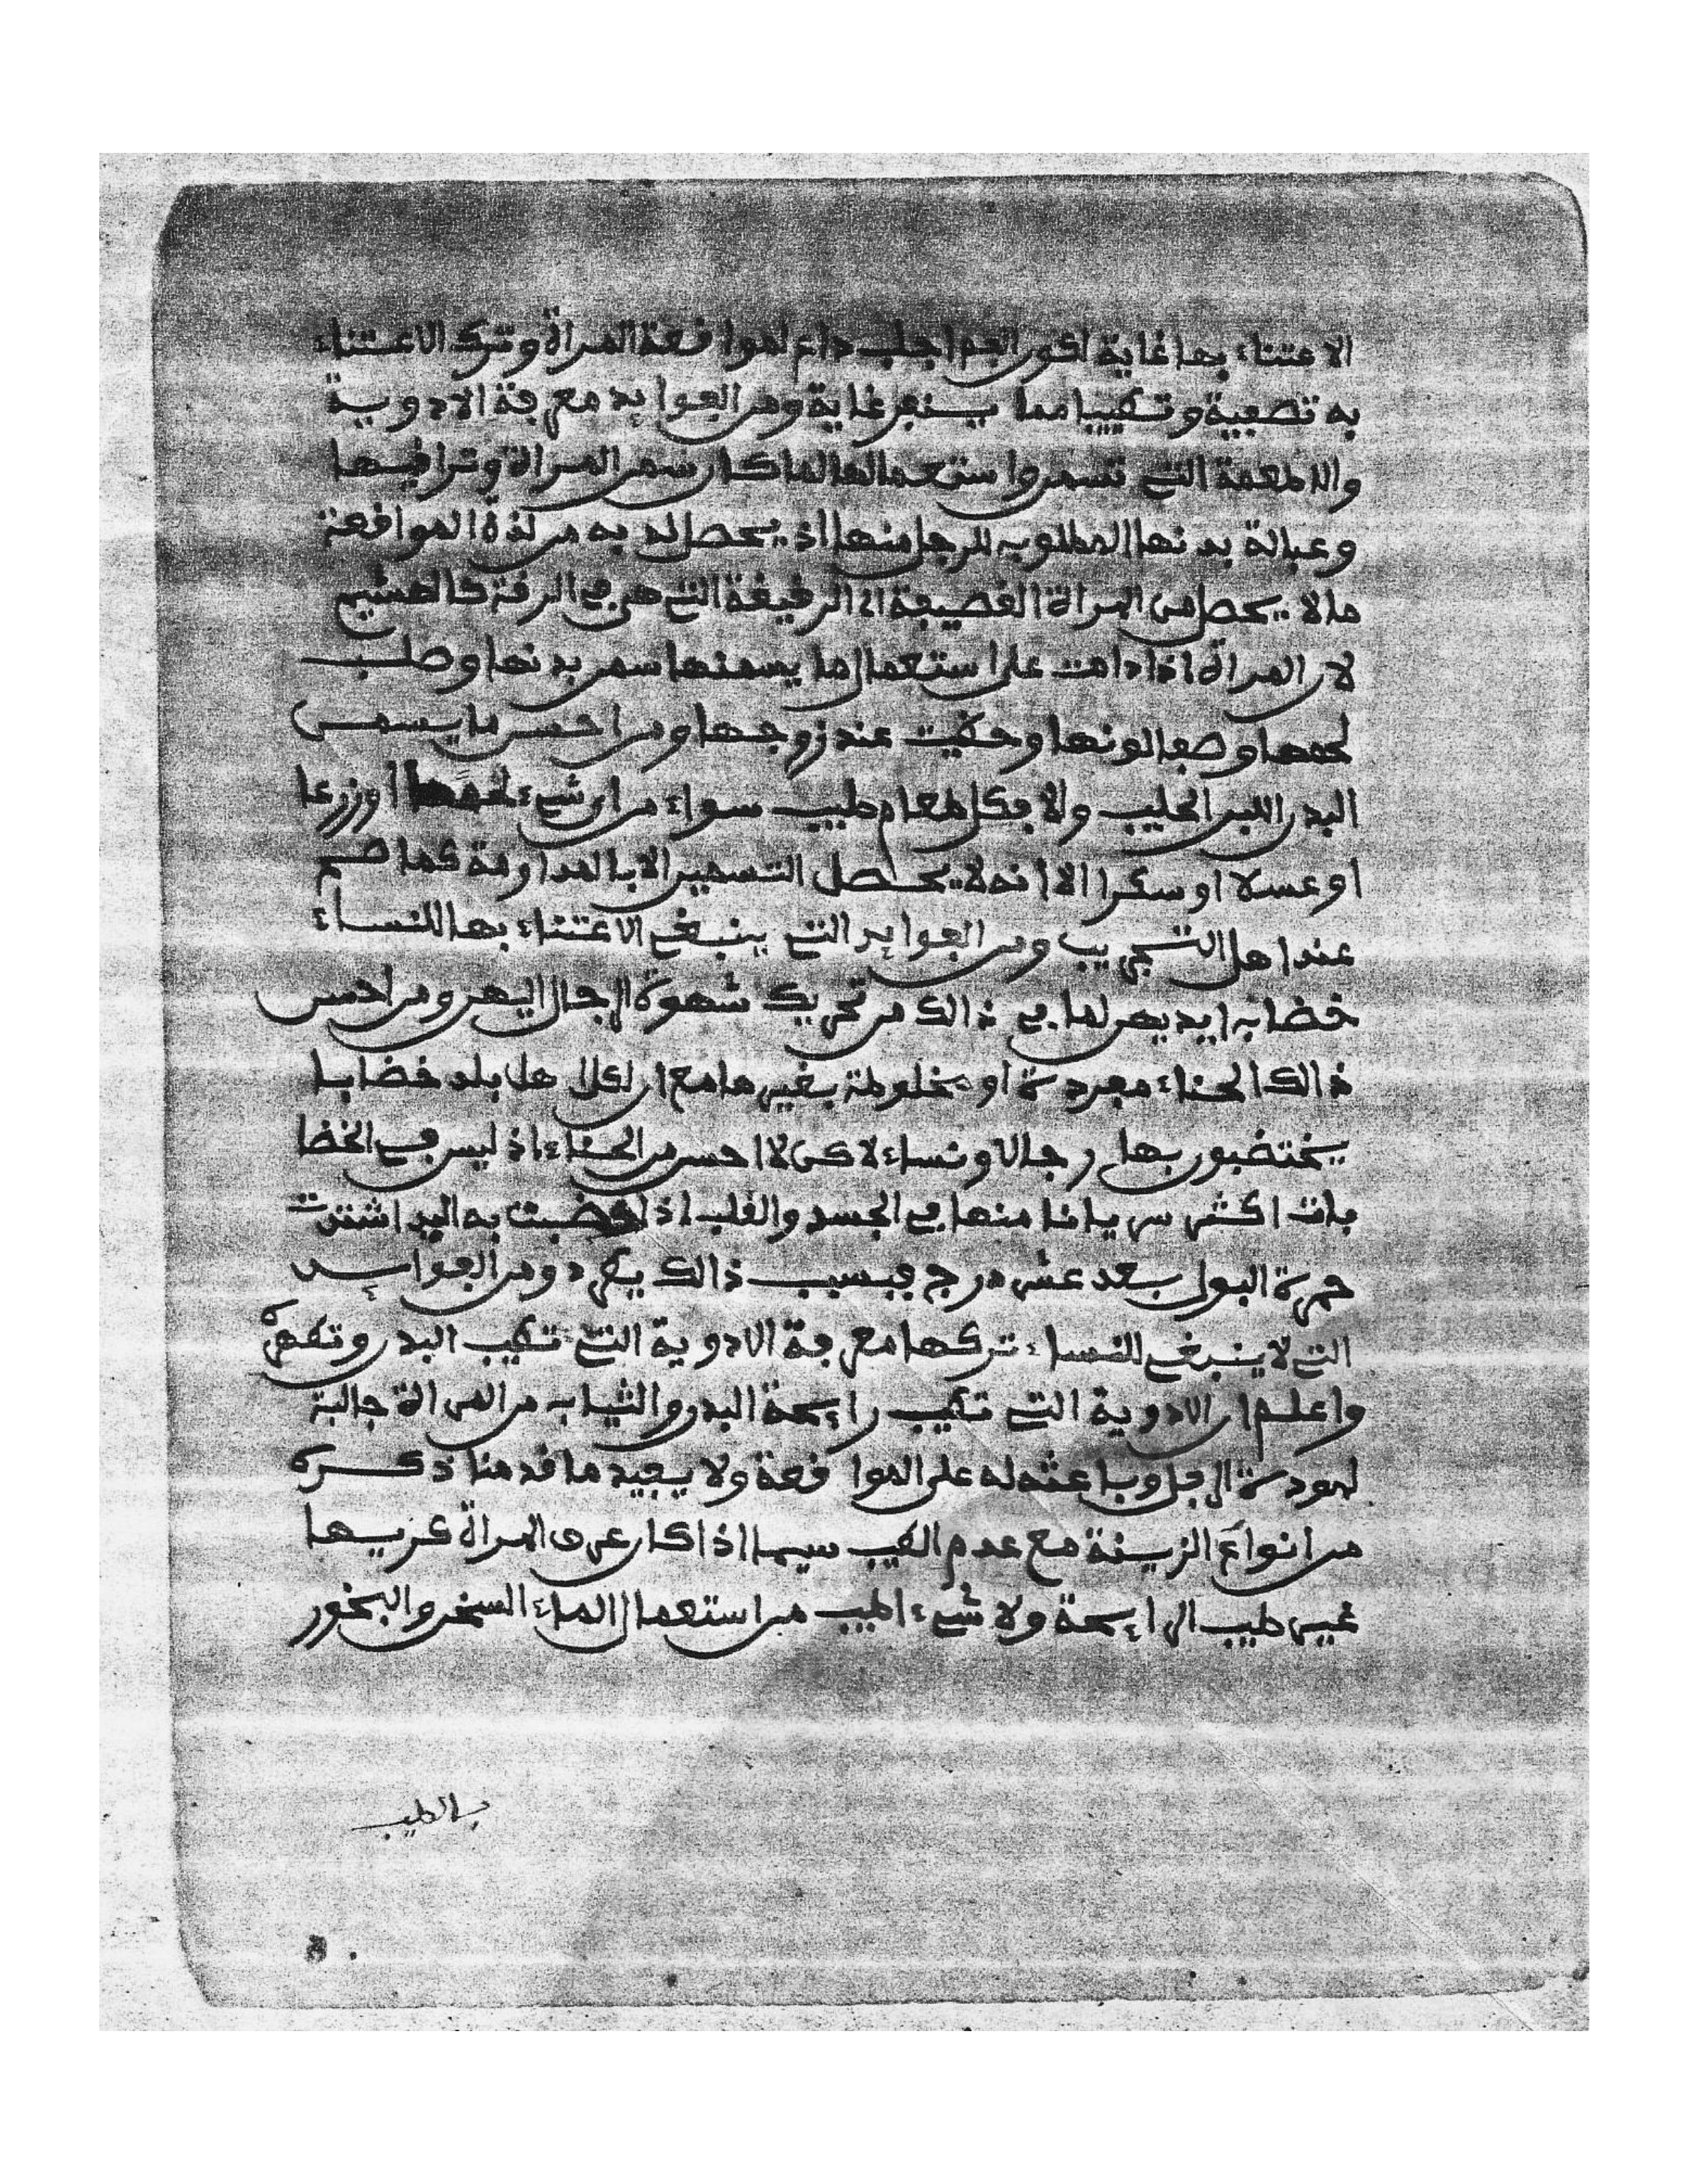 الاعتناء بها غاية لكون الفم اجلب داع لمواقعة المراة وترك الاعتناء
به تصفية وتطييبا مما ينفر غاية ومن الفوايد معرفة الادوية
والاطعمة التي تسمن واستعمالها لما كان سمن المراة وترافيها
وعبالة بدنها المطلوب للرجل منها اذ يحصل له به من لذة المواقعة
مالا يحصل من المراة القصيفة اي الرقيقة التي هي في الرقة كالهشيم
لان المراة اذا دامت على استعمال ما يسمنها سمن بدنها وصلب
لحمها وصفا لونها وحظيت عند زوجها ومن احسن ما يسمن
البدن اللبن الحليب والا فكل طعام طيب سواء من اي شيء لحما اوزرعا
او عسلا او سكرا الا انه لا يحصل التسمين الا بالمداومة كما صح
عند اهل التجريب ومن الفوايد التي ينبغي الاعتناء بها للنساء
خضاب ايديهن لما في ذالك من تحريك شهوة الرجال اليهن ومن احسن
ذالك الحناء مفردة او مخلوطة بغيرها مع ان لكل اهل بلد خضابا
يختضبون بها رجالا ونساء لاكن لا احسن من الحناء اذ ليس في الخضا
بات اكثر سريانا منها في الجسد والقلب اذا خضبت به اليد اشتدت
حمرة البول بعد عشر درج فبسبب ذالك يفرح ومن الفوايد
التي لا ينبغي للنساء تركها معرفة الادوية التي تطيب البدن وتطهره
واعلم ان الادوية التي تطيب رايحة البدن والثياب من المراة جالبة
لمودة الرجل وباعثه له على المواقعة ولا يفيد ما قدمنا ذكره
من انواع الزينة مع عدم الطيب سيما اذا كان عرق المراة كريها
غير طيب الرايحة ولا شيء اطيب من استعمال الماء السخن والبخور
بالطيب